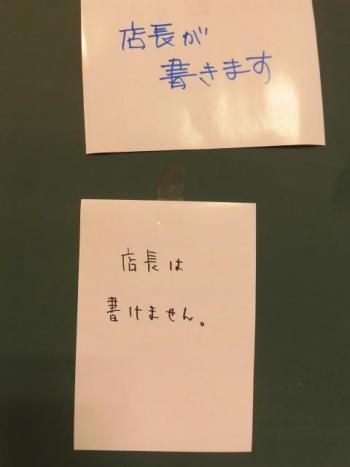 店長が
書きます
店長は
書けません。